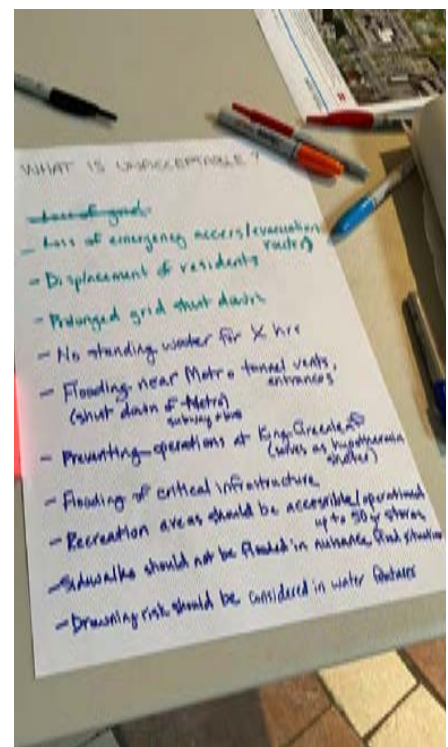 WHAT IS UNACCEPTABLE?
Loss of grid
- Loss of emergency access/evacuation
routes
- Displacement of residents
- Prolonged grid shut downs
- No standing water for X hrs
- Flooding near Metro tunnel vents,
entrances
(shut down of Metro)
subway + bus
- Preventing operations at King-Greenleaf
(serves as hypothermia
shelter)
- Flooding of critical infrastructure
- Recreation areas should be accessible/operational
up to 50 yr storm
- Sidewalks should not be flooded in nuisance flood situation
- Drowning risk should be considered in water features